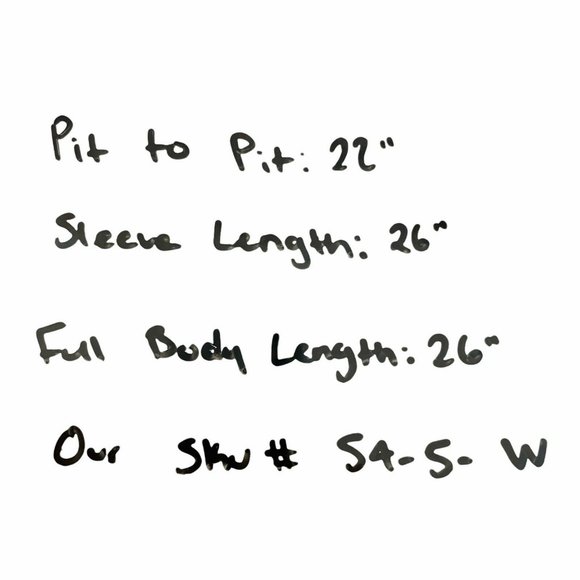 Pit to Pit: 22"
Sleeve Length: 26"
Full Body Length: 26"
Our Sku # S4-S-W